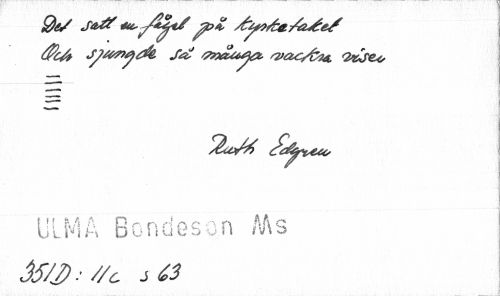 Det satt en fågel på kyrketaket
Och sjungde så många vackra visor
Ruth Edgren
ULMA Bondeson Ms
351D: 11c s 63